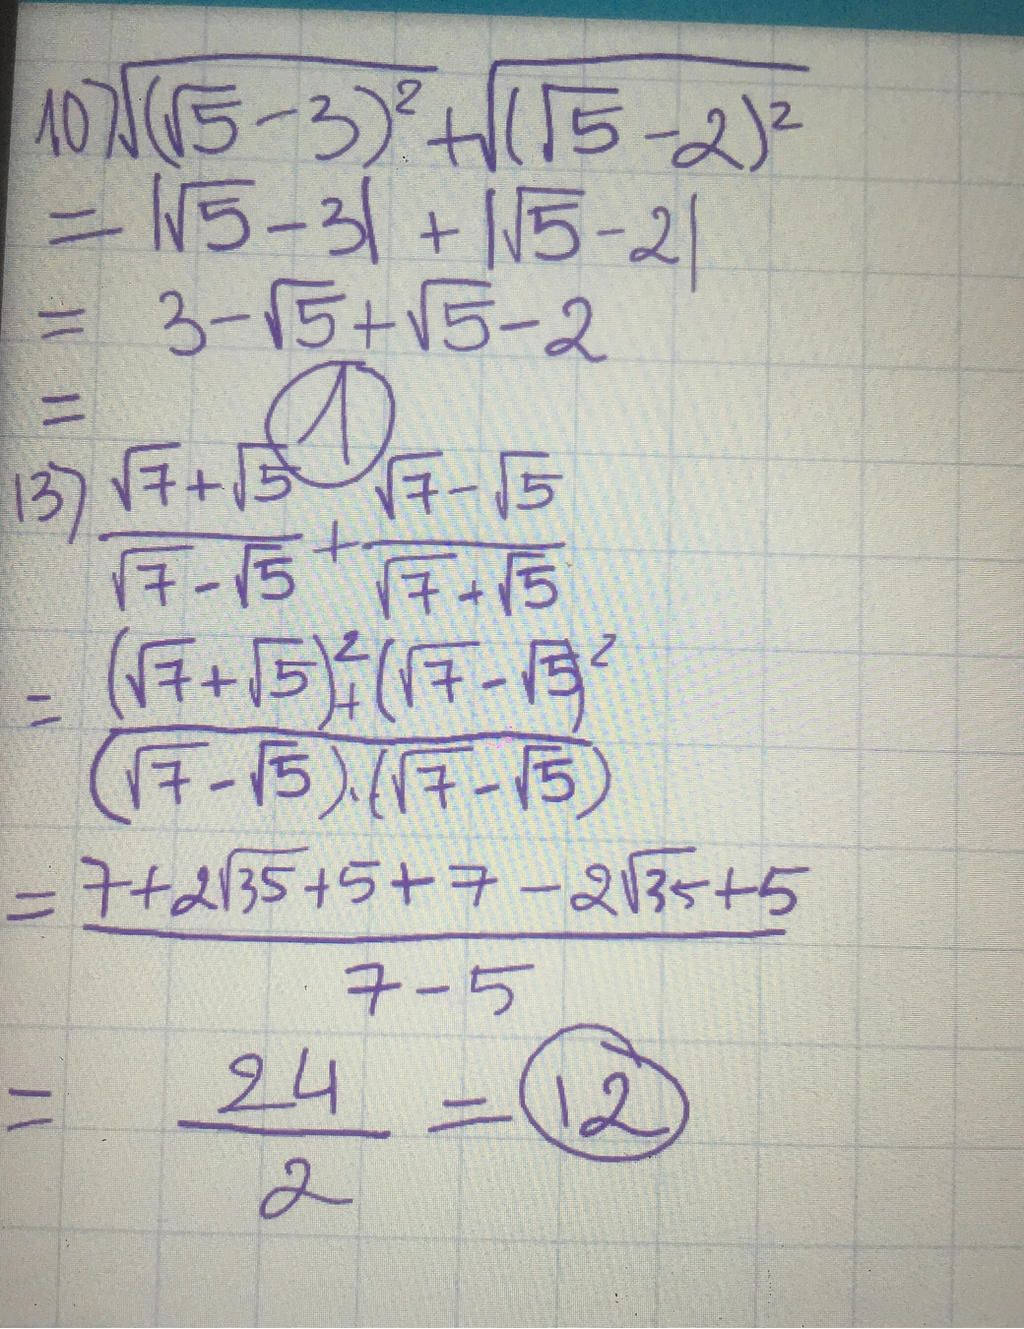 10) √(√5 - 3)² + √(√5 - 2)²
= |√5 - 3| + |√5 - 2|
= 3 - √5 + √5 - 2
= 1
13) (√7 + √5)/(√7 - √5) + (√7 - √5)/(√7 + √5)
= ((√7 + √5)² + (√7 - √5)²)/((√7 - √5).(√7 - √5))
= (7 + 2√35 + 5 + 7 - 2√35 + 5)/(7 - 5)
= 24/2 = 12